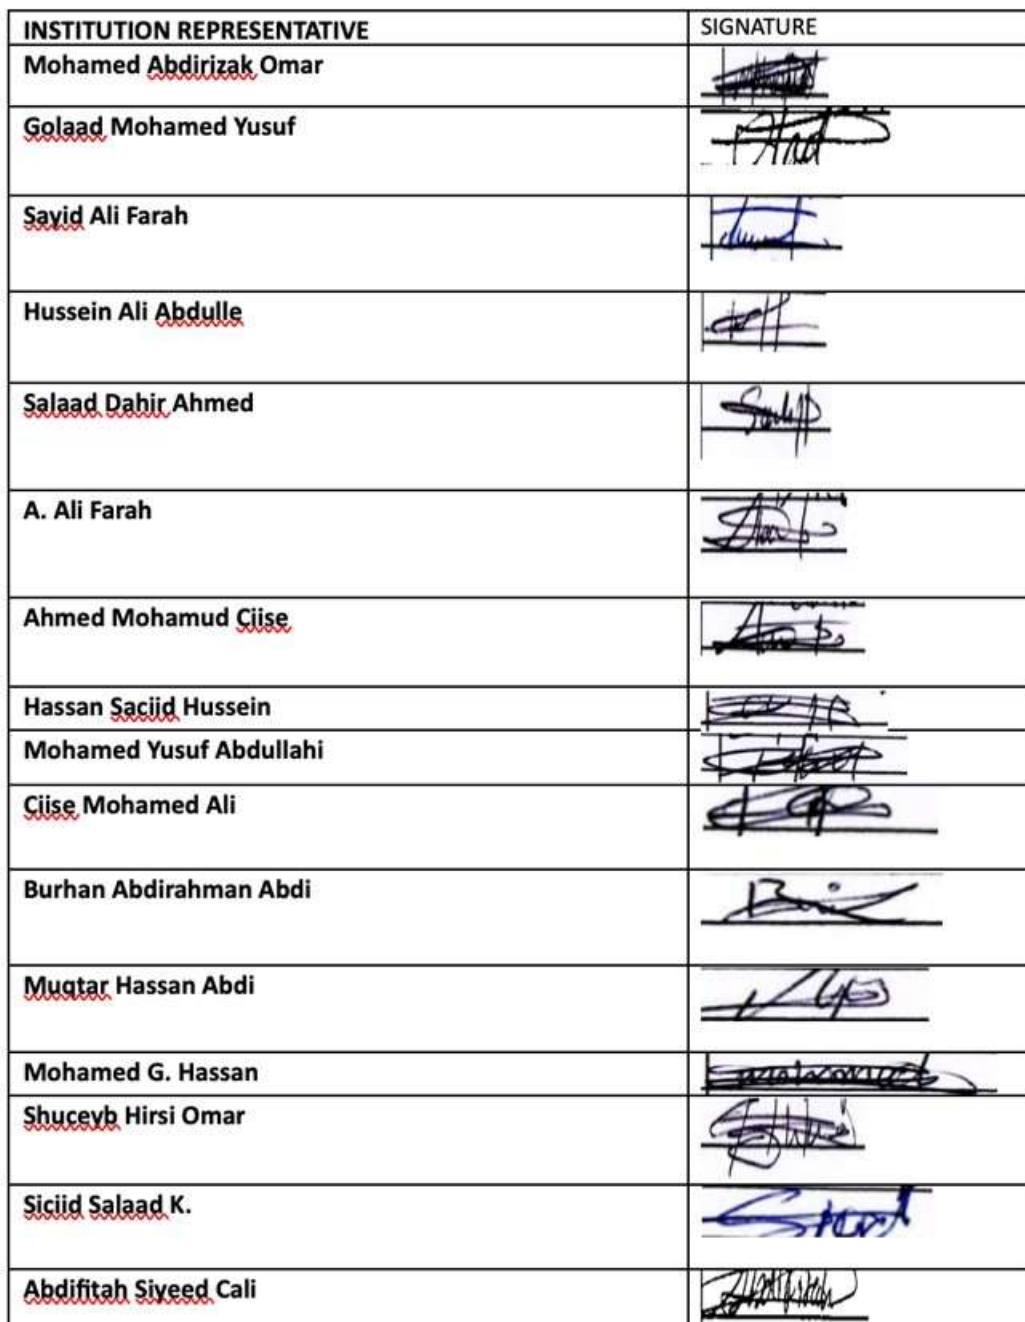 INSTITUTION REPRESENTATIVE SIGNATURE
Mohamed Abdirizak Omar
Golaad Mohamed Yusuf
Sayid Ali Farah
Hussein Ali Abdulle
Salaad Dahir Ahmed
A. Ali Farah
Ahmed Mohamud Ciise
Hassan Saciid Hussein
Mohamed Yusuf Abdullahi
Ciise Mohamed Ali
Burhan Abdirahman Abdi
Muqtar Hassan Abdi
Mohamed G. Hassan
Shuceyb Hirsi Omar
Siciid Salaad K.
Abdifitah Siyeed Cali